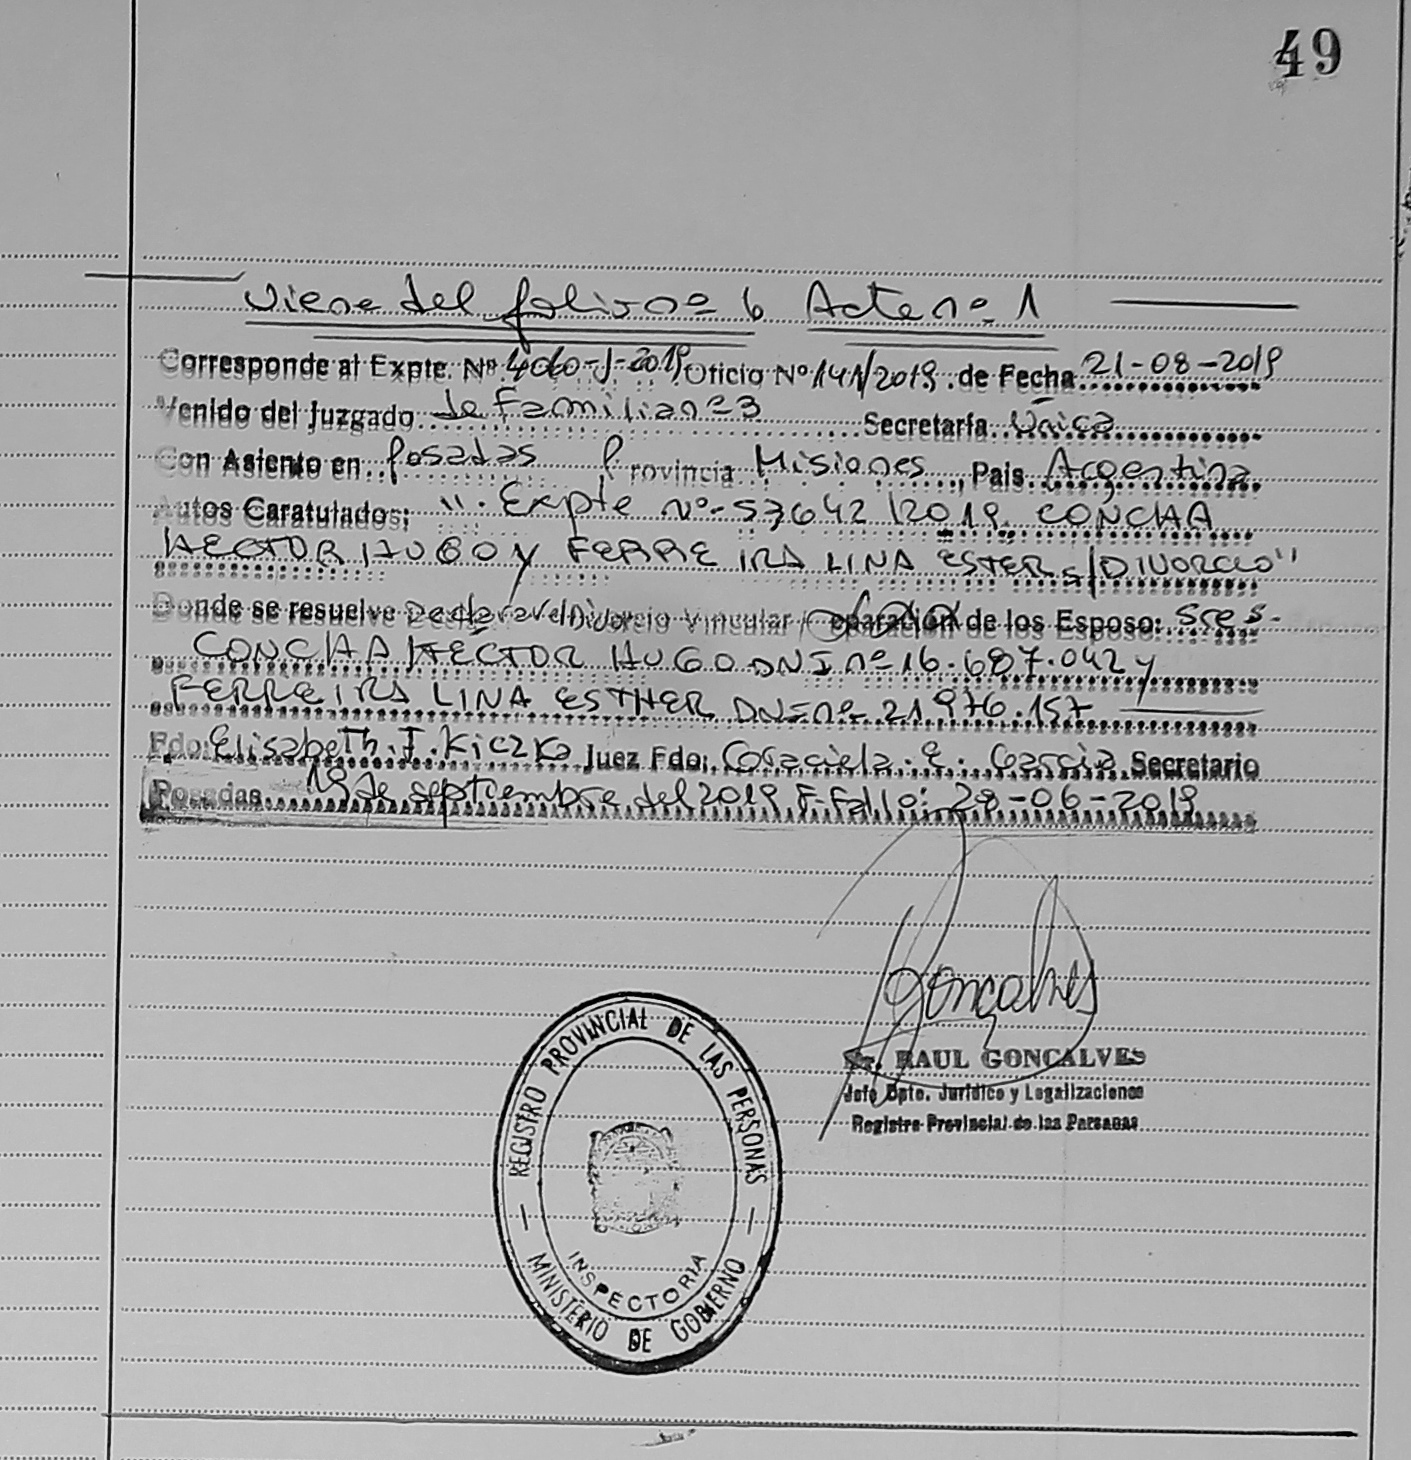 49
Viene del folio nº 6 Acta nº 1
Corresponde al Expte. Nº 4060-J-2019 Oficio Nº 141/2019 de Fecha 21-08-2019
Venido del Juzgado de Familia nº 3 Secretaría Única
Con Asiento en Posadas Provincia Misiones, Pais Argentina
Autos Caratulados: "Expte Nº 57642/2019 CONCHA
HECTOR HUGO y FERREIRA LINA ESTER s/DIVORCIO"
Donde se resuelve Declarar el Divorcio Vincular / eparación de los Esposo: Sres.
CONCHA HÉCTOR HUGO DNI nº 16.687.042 y
FERREIRA LINA ESTHER DNI nº 21.976.157
Fdo: Elisabeth. J. Kiczka Juez Fdo: Graciela. E. Garcia Secretario
Posadas 19 de septiembre del 2019 F. Fallo: 28-06-2019
Gonçalves
Sr. RAUL GONCALVES
Jefe Dpto. Jurídico y Legalizaciones
Registro Provincial de las Personas
REGISTRO PROVINCIAL DE LAS PERSONAS
INSPECTORIA
MINISTERIO DE GOBIERNO